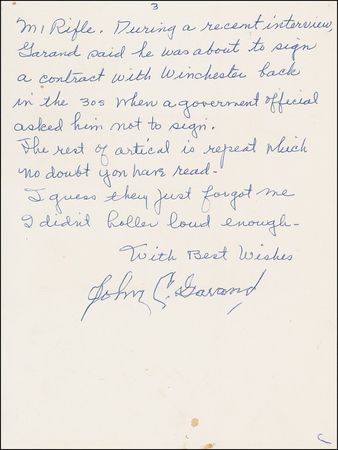 3
M1 Rifle. During a recent interview,
Garand said he was about to sign
a contract with Winchester back
in the 30s when a goverment official
asked him not to sign.
The rest of artical is repeat which
no doubt you have read-
I guess they just forgot me
I didn't holler loud enough-
With Best Wishes
John C. Garand